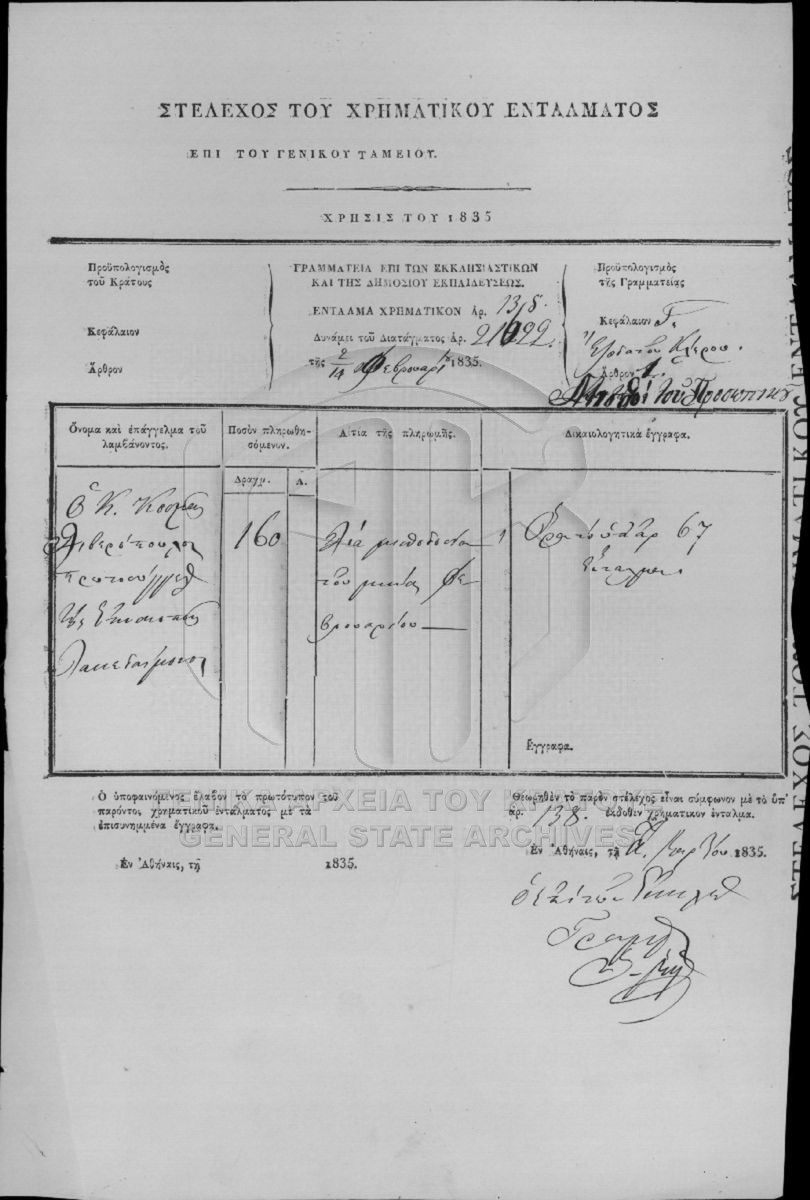 ΣΤΕΛΕΧΟΣ ΤΟΥ ΧΡΗΜΑΤΙΚΟΥ ΕΝΤΑΛΜΑΤΟΣ
ΕΠΙ ΤΟΥ ΓΕΝΙΚΟΥ ΤΑΜΕΙΟΥ.
ΧΡΗΣΙΣ ΤΟΥ 1835
Προϋπολογισμὸς
τοῦ Κράτους
Κεφάλαιον
Ἄρθρον
ΓΡΑΜΜΑΤΕΙΑ ΕΠΙ ΤΩΝ ΕΚΚΛΗΣΙΑΣΤΙΚΩΝ
ΚΑΙ ΤΗΣ ΔΗΜΟΣΙΟΥ ΕΚΠΑΙΔΕΥΣΕΩΣ.
ΕΝΤΑΛΜΑ ΧΡΗΜΑΤΙΚΟΝ Ἀρ. 138.
Δυνάμει τοῦ Διατάγματος Ἀρ.
τῆς 2/14 Φεβρουαρί 1835.
Προϋπολογισμὸς
τῆς Γραμματείας
Κεφάλαιον Γ.
Ἔξοδα τοῦ Κλήρου.
Ἄρθρον 1.
Μισθοὶ τοῦ Προσωπικοῦ
Ὄνομα καὶ ἐπάγγελμα τοῦ
λαμβάνοντος.
Ποσὸν πληρωθη-
σόμενον.
Αἰτία τῆς πληρωμῆς.
Δικαιολογητικὰ ἔγγραφα.
Δραχμ. Λ.
Ὁ Κ. Κοσμᾶς
τῆς Ἐπισκοπῆς
Λακεδαίμονος
160
Διὰ μισθοδοσίαν
τοῦ μηνὸς Φε-
βρουαρίου
1
67
Ἔγγραφα.
Ὁ ὑποφαινόμενος ἔλαβον τὸ πρωτότυπον τοῦ
παρόντος χρηματικοῦ ἐντάλματος μὲ τὰ
ἐπισυνημμένα ἔγγραφα.
Ἐν Ἀθήναις, τῇ 1835.
Θεωρηθὲν τὸ παρὸν στέλεχος εἶναι σύμφωνον μὲ τὸ ὑπ'
ἀρ. 138. ἐκδοθὲν χρηματικὸν ἔνταλμα.
Ἐν Ἀθήναις, τῇ Μαρτίου 1835.
ΓΕΝΙΚΑ ΑΡΧΕΙΑ ΤΟΥ ΚΡΑΤΟΥΣ
GENERAL STATE ARCHIVES
ΣΤΕΛΕΧΟΣ ΤΟΥ ΧΡΗΜΑΤΙΚΟΥ ΕΝΤΑΛΜΑΤΟΣ